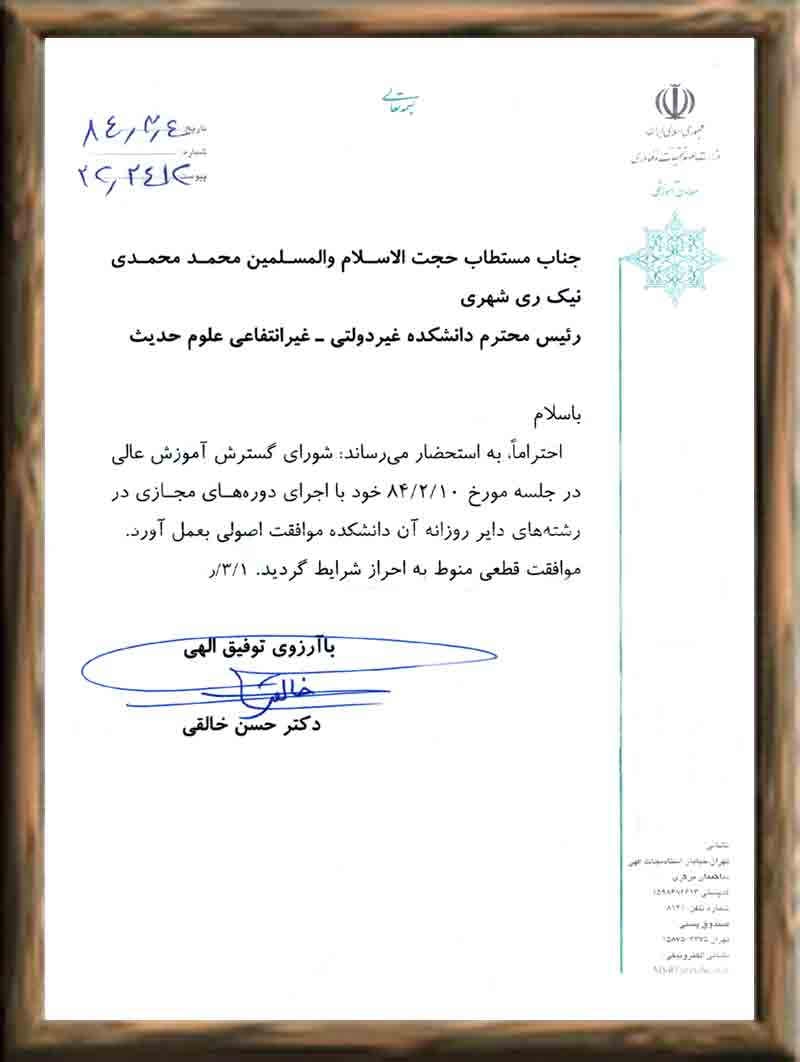 بسمه تعالی
جمهوری اسلامی ایران
وزارت علوم، تحقیقات و فناوری
معاونت آموزشی
تاریخ
شماره
پیوست
جناب مستطاب حجت الاسلام والمسلمین محمد محمدی
نیک ری شهری
رئیس محترم دانشکده غیردولتی ـ غیرانتفاعی علوم حدیث
باسلام
احتراماً، به استحضار می‌رساند: شورای گسترش آموزش عالی
در جلسه مورخ ۸۴/۲/۱۰ خود با اجرای دوره‌های مجازی در
رشته‌های دایر روزانه آن دانشکده موافقت اصولی بعمل آورد.
موافقت قطعی منوط به احراز شرایط گردید. ۳/۱/ر
باآرزوی توفیق الهی
خالقی
دکتر حسن خالقی
نشانی:
تهران، خیابان استاد نجات الهی
ساختمان مرکزی
کدپستی
شماره تلفن
صندوق پستی
تهران
نشانی الکترونیکی: